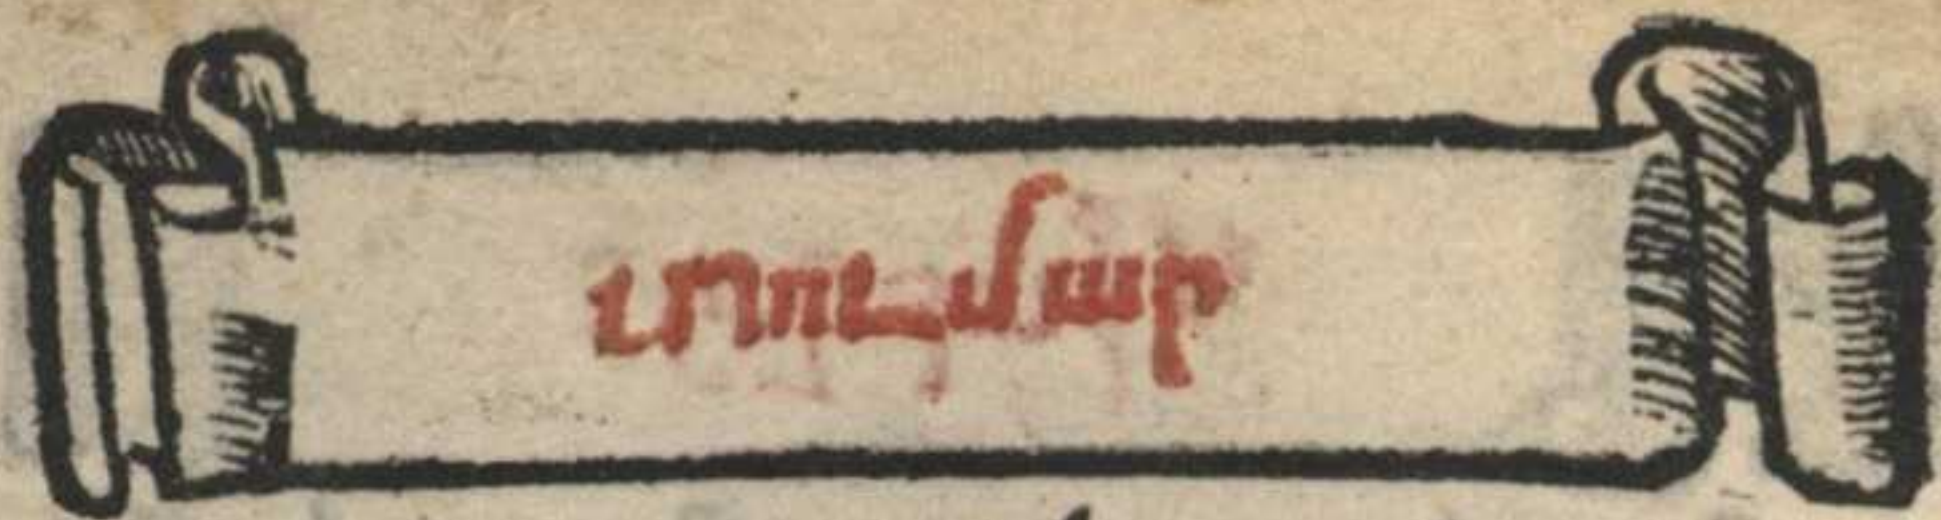 տոււմար